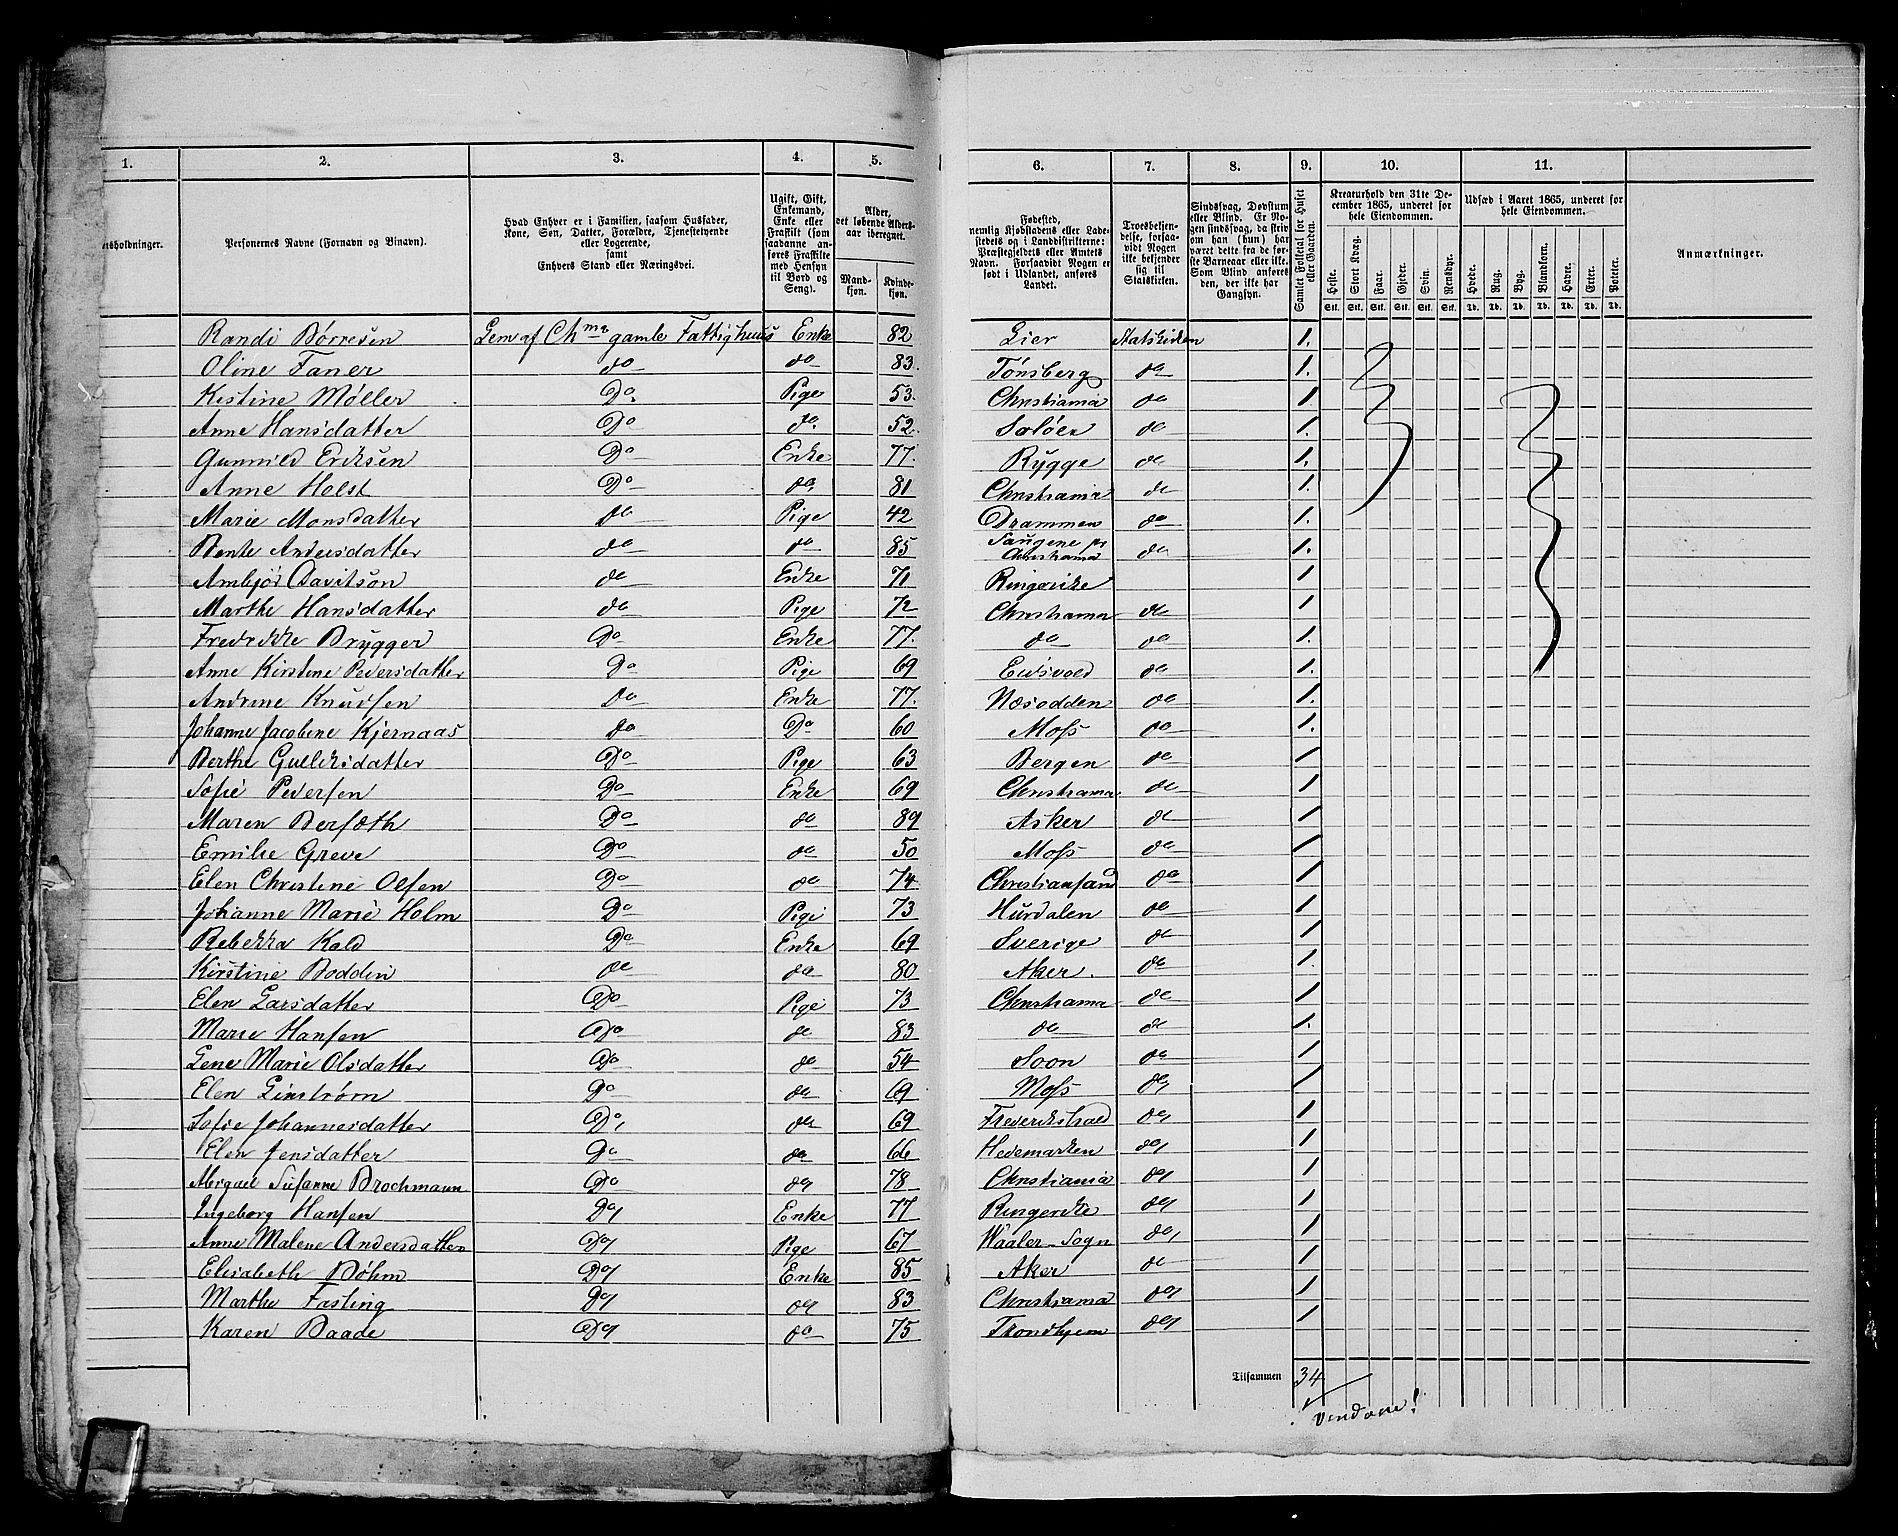 1. 2. 3. 4. 5. 6. 7. 8. 9. 10. 11.
nsholdninger.
Personernes Navne (Fornavn og Binavn).
Hvad Enhver er i Familien, saasom Husfader,
Kone, Søn, Datter, Forældre, Tjenestetyende
eller Logerende,
samt
Enhvers Stand eller Næringsvei.
Ugift, Gift,
Enkemand,
Enke eller
Fraskilt (som
saadanne an-
føres Fraskilte
med Hensyn
til Bord og
Seng).
Alder,
det løbende Alders-
aar iberegnet.
Mand-
kjøn.
Kvinde-
kjøn.
Fødested,
nemlig Kjøbstadens eller Lade-
stedets og i Landdistrikterne:
Præstegjeldets eller Amtets
Navn. Forsaavidt Nogen er
født i Udlandet, anføres
Landet.
Troesbekjen-
delse, forsaa-
vidt Nogen
ikke bekjender
sig til
Statskirken.
Sindssvag, Døvstum
eller Blind. Er No-
gen sindssvag, da skriv
om han (hun) har
været dette fra de før-
ste Barneaar eller ikke.
Som Blind anføres
den, der ikke har
Gangsyn.
Samlet Folketal for Huset
eller Gaarden.
Kreaturhold den 31te De-
cember 1865, underet for
hele Eiendommen.
Heste. Stort Kvæg. Faar. Gjeder. Svin. Rensdyr.
Stk. Stk. Stk. Stk. Stk. Stk.
Udsæd i Aaret 1865, underet for
hele Eiendommen.
Hvede. Rug. Byg. Blandkorn. Havre. Erter. Poteter.
Td. Td. Td. Td. Td. Td. Td.
Anmærkninger.
Randi Børresen Lem af Chma gamle Fattighuus Enke 82 Lier Statskirken 1.
Oline Faner do do 83. Tønsberg do 1.
Kistine Møller Do. Pige 53. Christiania do 1
Anne Hansdatter Do do. 52. Soløer do 1.
Gunnild Eriksen Do Enke 77. Rygge do 1.
Anne Holst Do do, 81 Christiania do 1.
Marie Monsdatter do Pige 42 Drammen do 1.
Bente Andersdatter do do 85 Saugene pr Christiania do 1.
Ambjør Davitson do Enke 71 Ringerike 1
Marthe Hansdatter do Pige 72 Christiania do 1
Fredrikke Brygger Do Enke 77. do do 1.
Anne Kirstine Pedersdatter Do Pige 69 Eidsvold do 1.
Andrine Knudsen do Enke 77. Næsodden do 1.
Johanne Jacobine Kjernaas do Do 60 Moss do 1.
Berthe Gulliksdatter Do Pige 63 Bergen do 1
Sofie Pedersen Do Enke 69 Christiania do 1
Maren Do do 89 Asker do 1
Emilie Greve Do do 50 Moss do 1
Elen Christine Olsen Do do 74 Christiansand do 1
Johanne Marie Holm Do Pige 73 Hurdalen do 1
Rebekka Kold Do Enke 69 Sverige do 1
Kirstine Boddin do do 80 Aker. do 1.
Elen Larsdatter Do Pige 73 Christiania do 1
Marie Hansen Do do 83 do do 1.
Lene Marie Olsdatter Do do 54 Soon do 1
Elen Linstrøm Do do 69 Moss do 1
Sofie Johannesdatter Do do 69 Frederikshald do 1
Elen Jensdatter Do do 66 Hedemarken do 1
Abigael Susanne Brochmann Do do 78 Christiania do 1
Ingeborg Hansen Do Enke 77 Ringerike do 1
Anne Malene Andersdatter Do Pige 67 Waaler Sogn do 1
Elisabeth Bøhm Do Enke 85 Aker do 1
Marthe Fasting Do do 83 Christiania do 1
Karen Baade Do do 75 Trondhjem do 1
Tilsammen 34